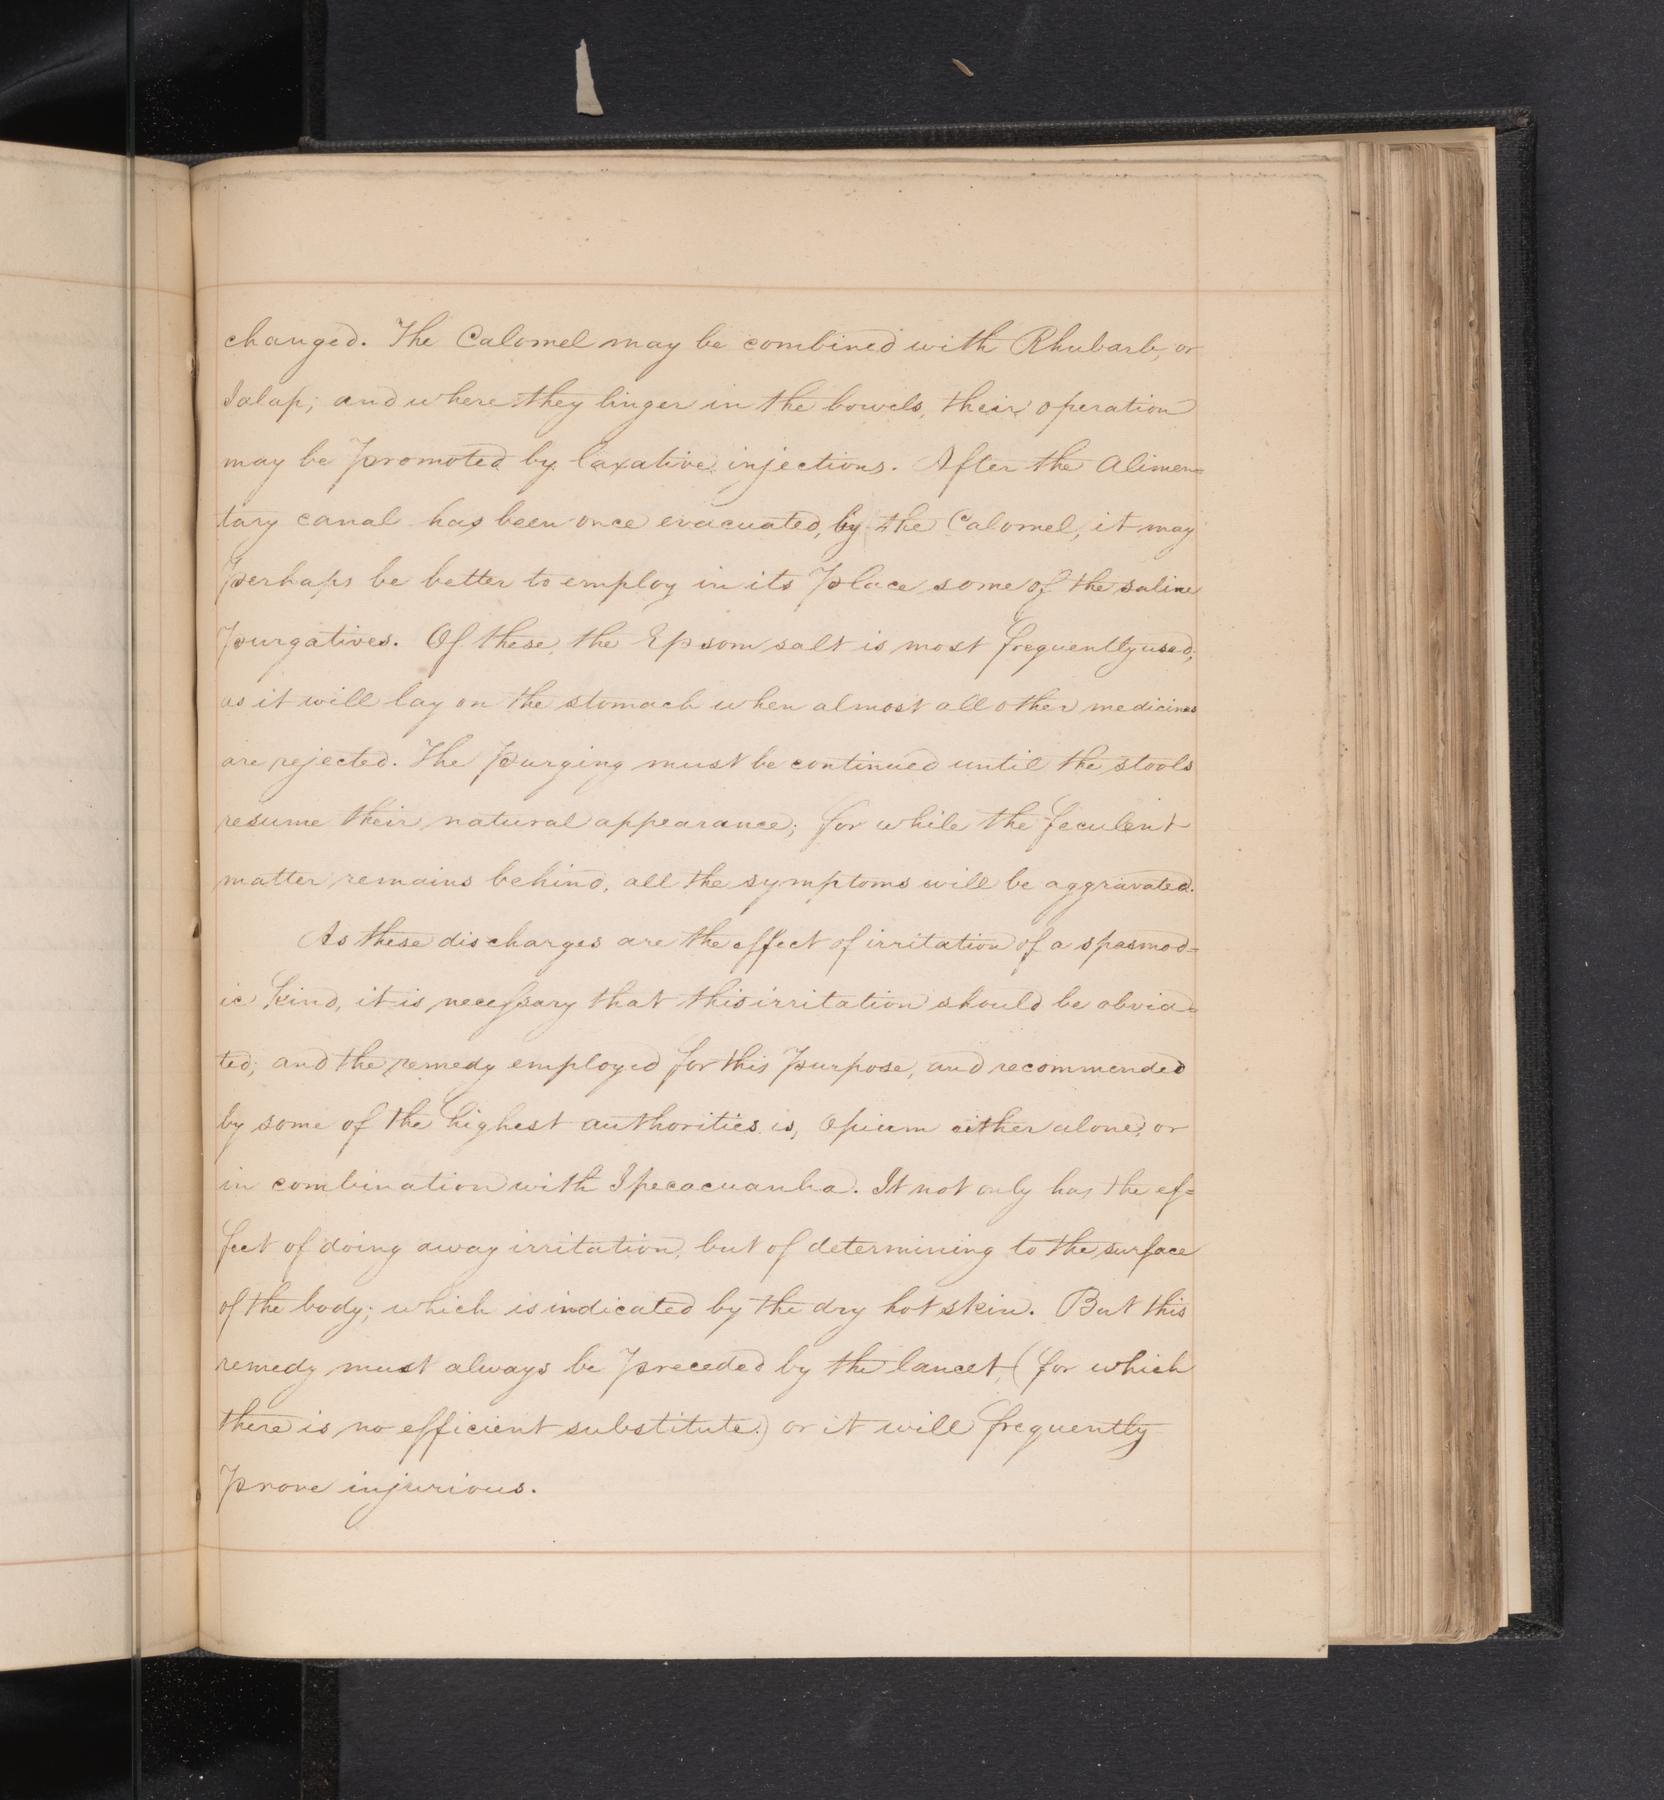 changed. The Calomel may be combined with Rhubarb, or
Jalap; and where they linger in the bowels, their operation
may be promoted by laxative injections. After the Alimen=
tary canal has been once evacuated, by the Calomel, it may
perhaps be better to employ in its place some of the saline
purgatives. Of these, the Epsom salt is most frequently used;
as it will lay on the stomach when almost all other medicines
are rejected. The purging must be continued until the stools
resume their natural appearance; for while the feculent
matter remains behind, all the symptoms will be aggravated.
As these discharges are the effect of irritation of a spasmod=
ic kind, it is necessary that this irritation should be obvia=
ted; and the remedy employed for this purpose, and recommended
by some of the highest authorities is, Opium either alone, or
in combination with Ipecacuanha. It not only has the ef=
fect of doing away irritation, but of determining to the surface
of the body; which is indicated by the dry hot skin. But this
remedy must always be preceded by the lancet, (for which
there is no efficient substitute.) or it will frequently
prove injurious.